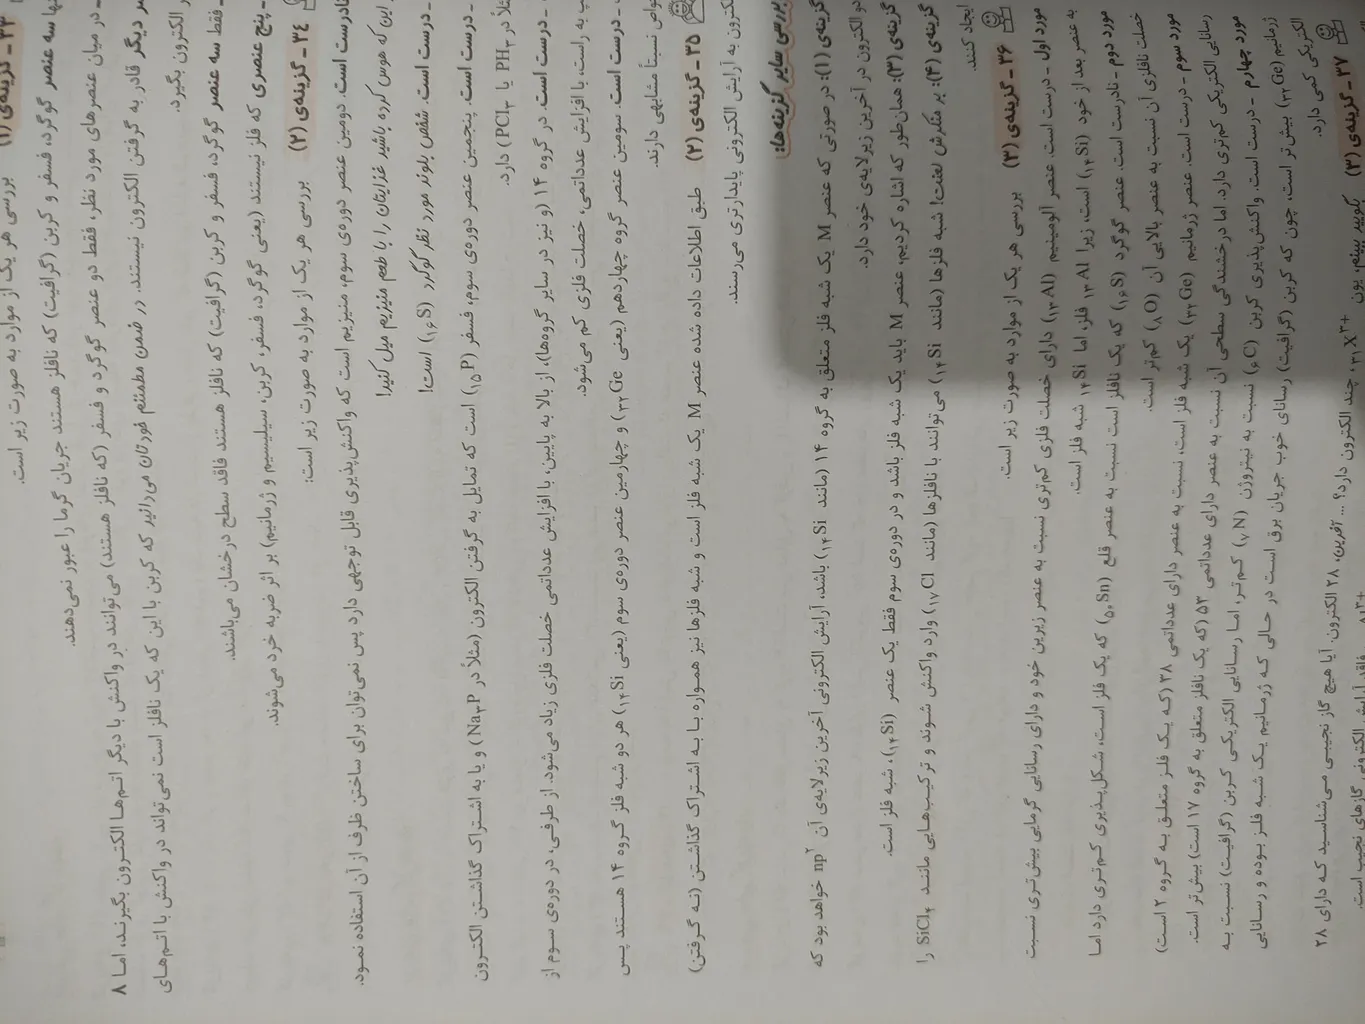 ۳۳ - گزینه‌ی (۱) بررسی هر یک از موارد به صورت زیر است.
تنها سه عنصر گوگرد، فسفر و کربن (گرافیت) که نافلز هستند جریان گرما را عبور نمی‌دهند.
- در میان عنصرهای مورد نظر، فقط دو عنصر گوگرد و فسفر (که نافلز هستند) می‌توانند در واکنش با دیگر اتم‌ها الکترون بگیرند، اما ۸
دیگر قادر به گرفتن الکترون نیستند. در ضمن مطمئنم خودتان می‌دانید که کربن با این که یک نافلز است نمی‌تواند در واکنش با اتم‌های
الکترون بگیرد.
- فقط سه عنصر گوگرد، فسفر و کربن (گرافیت) که نافلز هستند فاقد سطح درخشان می‌باشند.
- پنج عنصری که فلز نیستند (یعنی گوگرد، فسفر، کربن، سیلیسیم و ژرمانیم) بر اثر ضربه خرد می‌شوند.
۳۴ - گزینه‌ی (۲) بررسی هر یک از موارد به صورت زیر است:
نادرست است. دومین عنصر دوره‌ی سوم، منیزیم است که واکنش‌پذیری قابل توجهی دارد پس نمی‌توان برای ساختن ظرف از آن استفاده نمود.
این که هوس کرده باشید غذایتان را با طعم منیزیم میل کنید!
- درست است. شخص بلوند مورد نظر گوگرد (₁₆S) است!
- درست است. پنجمین عنصر دوره‌ی سوم، فسفر (₁₅P) است که تمایل به گرفتن الکترون (مثلاً در Na₃P) و یا به اشتراک گذاشتن الکترون
مثلاً در PH₃ یا PCl₃) دارد.
- درست است. در گروه ۱۴ (و نیز در سایر گروه‌ها)، از بالا به پایین، با افزایش عدداتمی خصلت فلزی زیاد می‌شود. از طرفی، در دوره‌ی سوم از
چپ به راست، با افزایش عدداتمی، خصلت فلزی کم می‌شود.
- درست است. سومین عنصر گروه چهاردهم (یعنی ₃₂Ge) و چهارمین عنصر دوره‌ی سوم (یعنی ₁₄Si) هر دو شبه فلز گروه ۱۴ هستند پس
خواص نسبتاً مشابهی دارند.
۳۵ - گزینه‌ی (۲) طبق اطلاعات داده شده عنصر M یک شبه فلز است و شبه فلزها نیز همواره با به اشتراک گذاشتن (نه گرفتن)
الکترون به آرایش الکترونی پایدارتری می‌رسند.
بررسی سایر گزینه‌ها:
گزینه‌ی (۱): در صورتی که عنصر M یک شبه فلز متعلق به گروه ۱۴ (مانند ₁₄Si) باشد، آرایش الکترونی آخرین زیرلایه‌ی آن np² خواهد بود که
دو الکترون در آخرین زیرلایه‌ی خود دارد.
گزینه‌ی (۳): همان‌طور که اشاره کردیم، عنصر M باید یک شبه فلز باشد و در دوره‌ی سوم فقط یک عنصر (₁₄Si)، شبه فلز است.
گزینه‌ی (۴): بر منکرش لعنت! شبه فلزها (مانند ₁₄Si) می‌توانند با نافلزها (مانند ₁₇Cl) وارد واکنش شوند و ترکیب‌هایی مانند SiCl₄ را
ایجاد کنند.
۳۶ - گزینه‌ی (۳) بررسی هر یک از موارد به صورت زیر است.
مورد اول - درست است. عنصر آلومینیم (₁₃Al) دارای خصلت فلزی کم‌تری نسبت به عنصر زیرین خود و دارای رسانایی گرمایی بیش‌تری نسبت
به عنصر بعد از خود (₁₄Si) است، زیرا ₁₃Al فلز، اما ₁₄Si شبه فلز است.
مورد دوم - نادرست است. عنصر گوگرد (₁₆S) که یک نافلز است نسبت به عنصر قلع (₅₀Sn) که یک فلز است، شکل‌پذیری کم‌تری دارد اما
خصلت نافلزی آن نسبت به عنصر بالایی آن (₈O) کم‌تر است.
مورد سوم - درست است. عنصر ژرمانیم (₃₂Ge) یک شبه فلز است، نسبت به عنصر دارای عدداتمی ۳۸ (که یک فلز متعلق به گروه ۲ است)
رسانایی الکتریکی کم‌تری دارد. اما درخشندگی سطحی آن نسبت به عنصر دارای عدداتمی ۵۳ (که یک نافلز متعلق به گروه ۱۷ است) بیش‌تر است.
مورد چهارم - درست است. واکنش‌پذیری کربن (₆C) نسبت به نیتروژن (₇N) کم‌تر، اما رسانایی الکتریکی کربن (گرافیت) نسبت به
ژرمانیم (₃₂Ge) بیش‌تر است، چون که کربن (گرافیت) رسانای خوب جریان برق است در حالی که ژرمانیم یک شبه فلز بوده و رسانایی
الکتریکی کمی دارد.
۳۷ - گزینه‌ی (۳) بگویید ببینم، یون ₃₁X³⁺، چند الکترون دارد؟ ... آفرین، ۲۸ الکترون. آیا هیچ گاز نجیبی می‌شناسید که دارای ۲۸
فاقد آرایش الکترونی گازهای نجیب است.